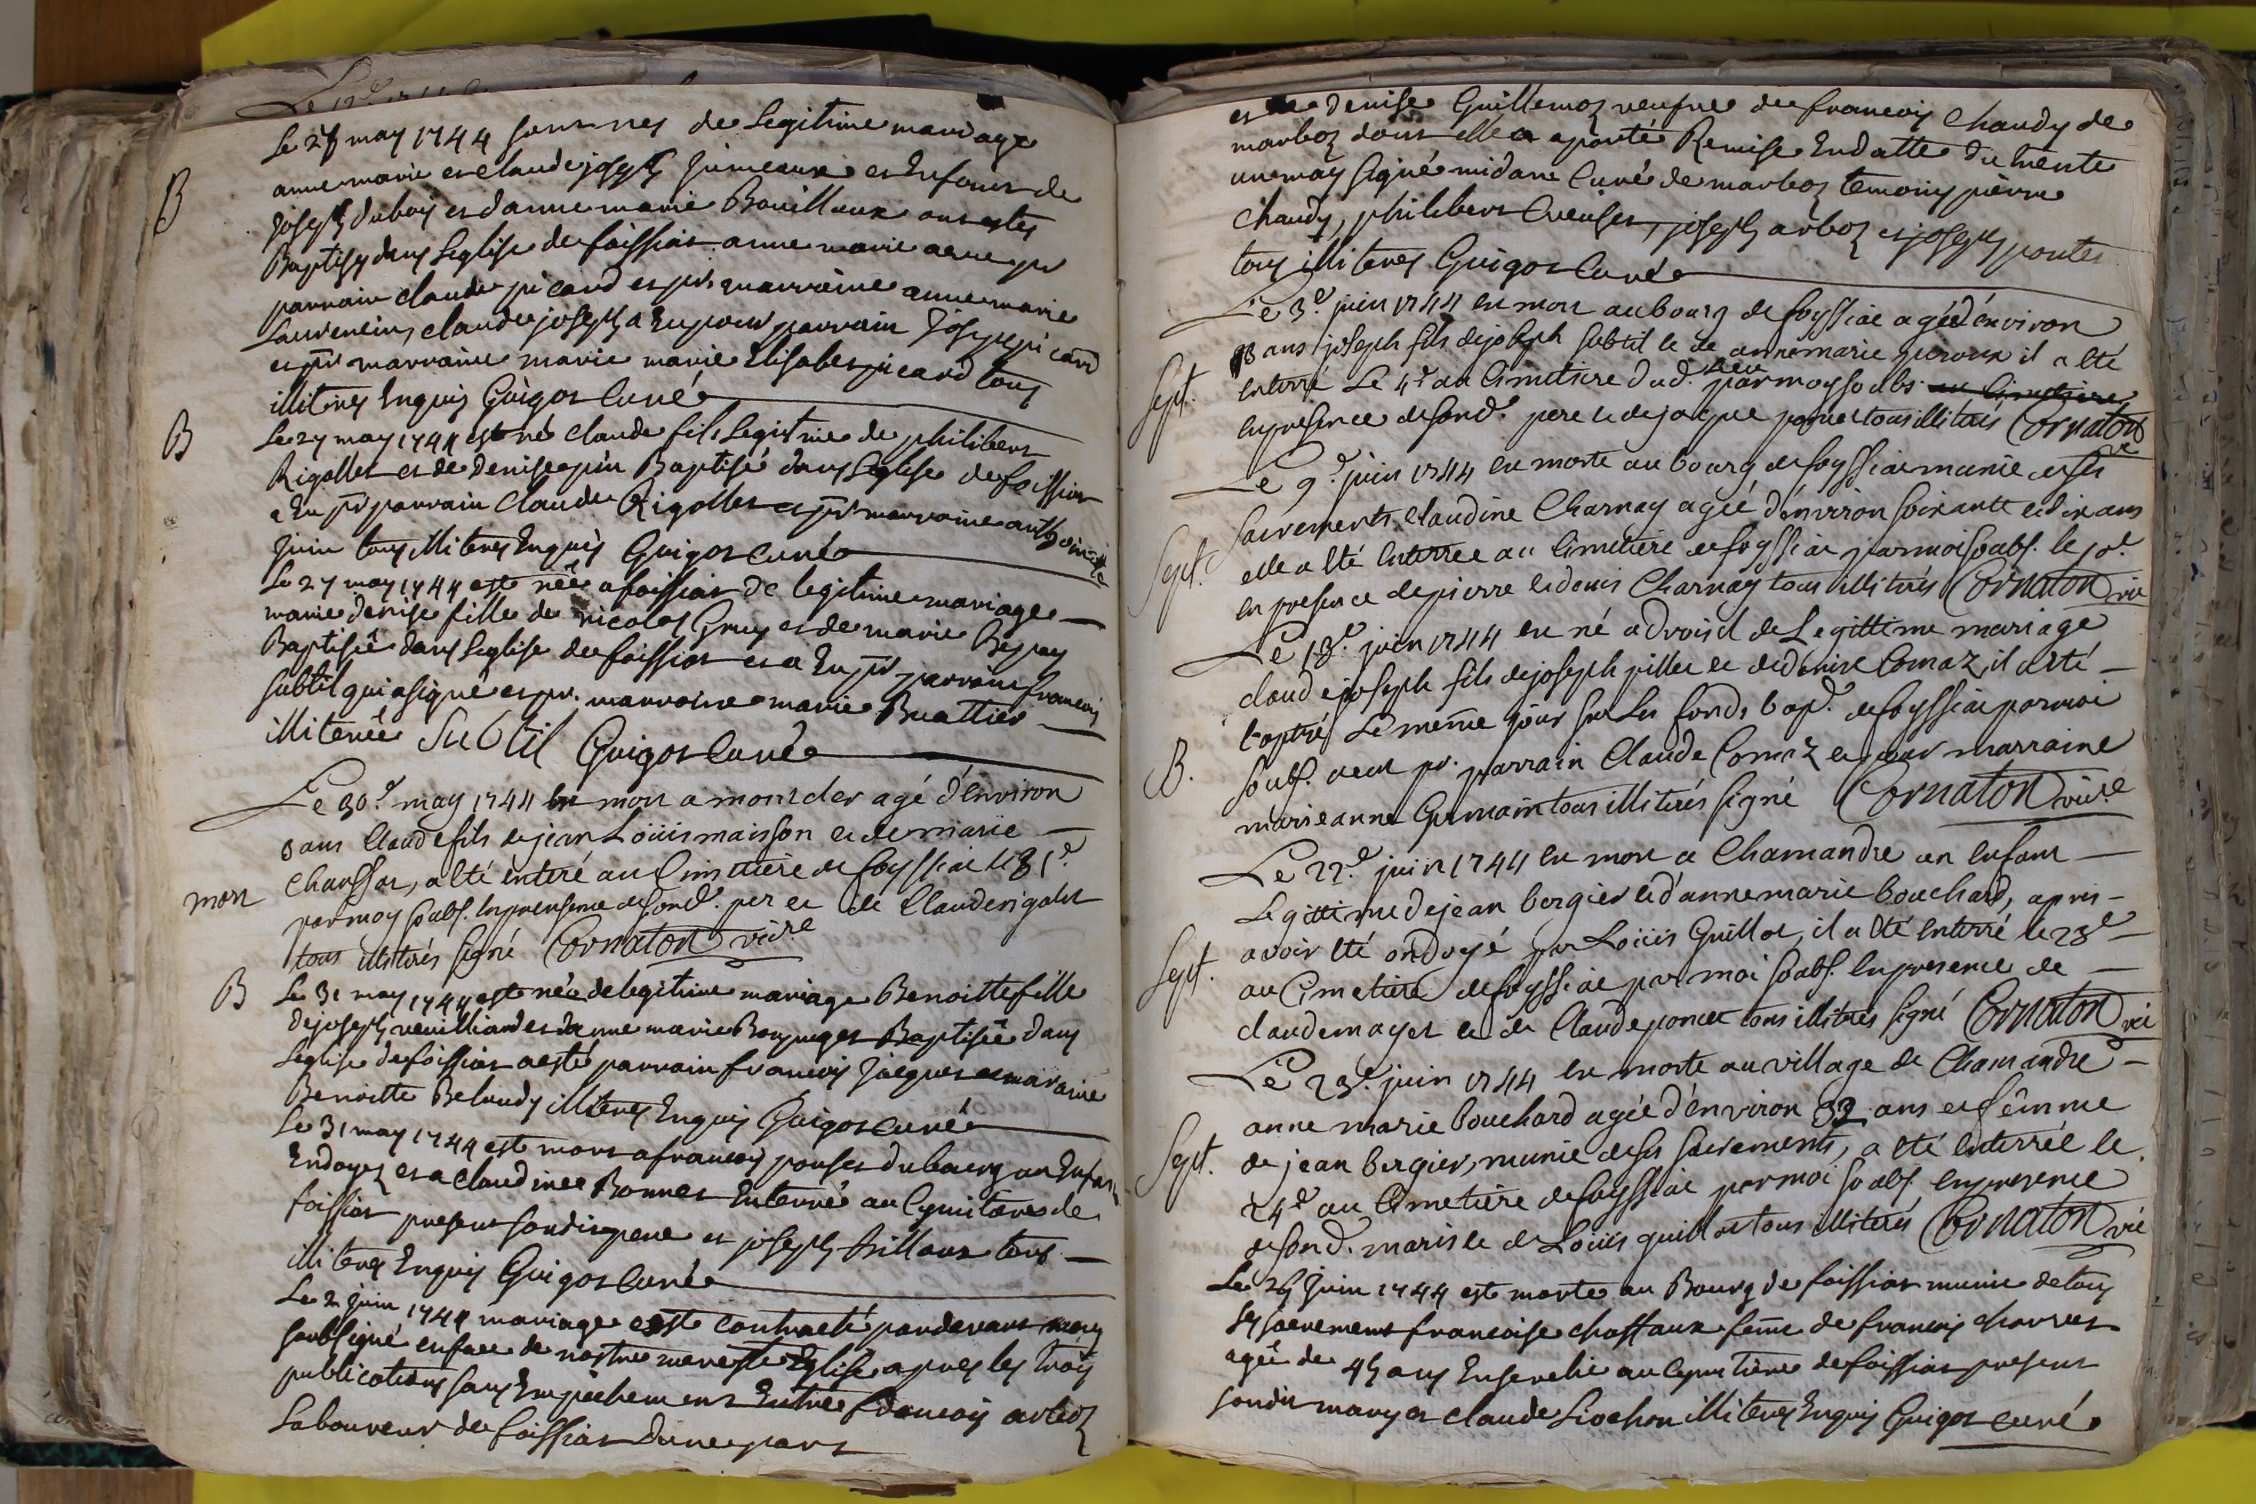 Le 27 may 1744 sont nes de Legitime mariage
B
anne marie et claude joseph Jumeaux et Enfans de
joseph duboy et danne marie Bouilloux ont estes
Baptisez dans Leglise de foissiat anne marie a eu pr
parrain claude picard et pr. marraine anne marie
Laurencin, claude joseph a Eu pour parrain Joseph picard
et pr marraine marie marie Elisabet picard tous
illiterez Enquis Guigot Curé
B
Le 27 may 1744 est né claude fils Legitime de philibert
Rigollet et de denise pin Baptisé dans Leglise de foissiat
a Eu pr parrain Claude Rigollet et pr marraine anthoinette
Juin tous illiterez Enquis Guigot Curé
Le 27 may 1744 est née a foissiat de legitime mariage
marie denise fille de nicolas Gruy et de marie
Baptisée dans Leglise de foissiat et a Eu pr parrain francois
subtil qui a signé et pr. marraine marie Buattier
illiterée Subtil Guigot Curé
Le 30.e may 1744 est mort a montcler agé d'environ
8 ans Claude fils de jean Loüis maisson et de marie
mort
Chanssat, a été enteré au Cimetiere de foyssiat le 31.e
par moy soubs. en presence de sond. per et de Claude rigolet
tous illiterés signé Cornaton vic.re
B
Le 31 may 1744 est née de legitime mariage Benoitte fille
de joseph veuilliard et danne marie Bouquet Baptisée dans
Leglise de foissiat a esté parrain francois Jacquet et maraine
Benoitte Beluudy illiterez Enquis Guigot Curé
Le 31 may 1744 est mort a francois ponset du bourg un Enfant
Endoyez et a Claudine Bonnet Enterré au Cymitere de
foissiat present sondit pere et joseph trilloux tous
illiterez Enquis Guigot Curé
Le 2 Juin 1744 mariage est contracté pardevant moy
soubsigné enface de nostre mere ste Eglise apres les trois
publications sans Empechement Entre francois arboz
Laboureur de foissiat dune part
et de denise Guillemoz veufve de francois Chaudy de
marboz dont elle a aporté Remise Endatte du trente
un may signé midan Curé de marboz temoins pierre
Chaudy, philibert Creuset, joseph arboz et joseph pontet
tous illiterez Guigot Curé
Le 3.e juin 1744 est mort au bourg de foyssiat agé d'environ
8 ans joseph fils de joseph subtil et de anne marie peroux il a été
Sept.
enterré Le 4.e au Cimetiere dud. lieu par moy soubs. au Cimetiere
en presence de sond. pere et de jacque ponet tous illiterés Cornaton vic
Le 9.e juin 1744 est morte au bourg de foyssiat munie de ses
sacrements, Claudine Charnay agée d'environ soixante et dix ans
Sept.
elle a été enterrée au Cimetiere de foyssiat par moi soubs. le 10.e
en presence de pierre et denis Charnay tous illiterés Cornaton vic
Le 18.e juin 1744 est né a droisel de Legittime mariage
claude joseph fils de joseph pillet et de denise Comaz, il a été
baptisé Le même jour sur Les fonds bap. de foyssiat par moi
B.
soubs. a eu pr. parrain Claude Comaz et pour marraine
marie anne Germain tous illiterés signé Cornaton vic.re
Le 22.e juin 1744 est mort a Chamandre un enfant
Legittime de jean bergier et d'anne marie bouchard, apres
avoir été ondoyé par Loüis Guillot, il a été enterré le 23.e
Sept.
au Cimetiere de foyssiat par moi soubs. en presence de
claude mayet et de Claude poncet tous illiterés signé Cornaton vic
Le 23.e juin 1744 est morte au village de Chamandre
anne marie bouchard agée d'environ 32 ans et femme
Sept.
de jean bergier, munie de ses sacrements, a été enterrée le
24.e au Cimetiere de foyssiat par moi soubs. en presence
de sond. maris et de Loüis guillot tous illiterés Cornaton vic
Le 25 Juin 1744 est morte au Bourg de foissiat munie de tous
ses sacrement francoise choffaux feme de francois charvet
agée de 45 ans Ensevelie au Cymitiere de foissiat present
sondit mary et claude Liochon illiterez Enquis Guigot Curé